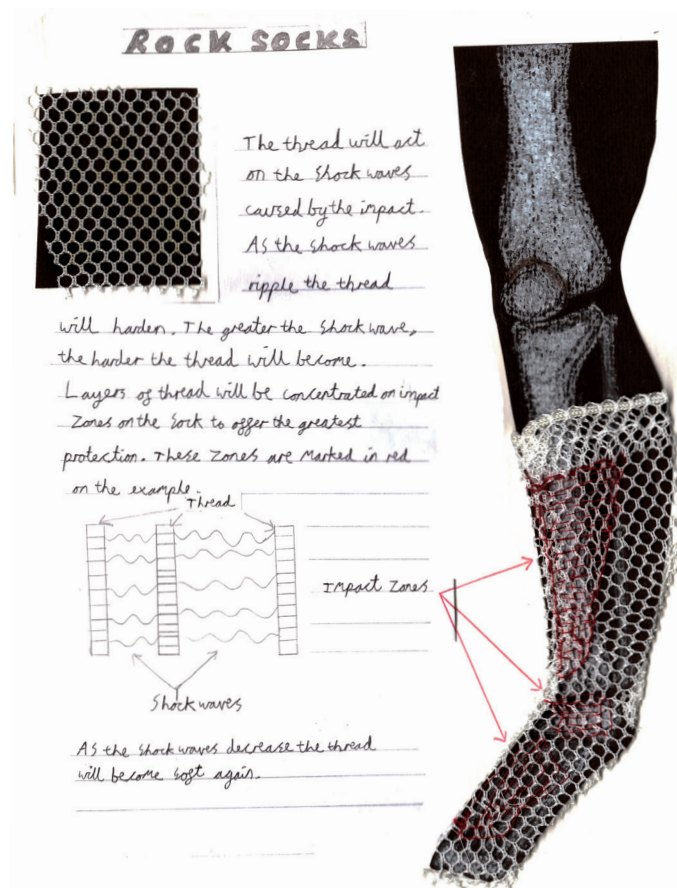 ROCK SOCKS
The thread will act
on the shock waves
caused by the impact.
As the shock waves
ripple the thread
will harden. The greater the shock wave,
the harder the thread will become.
Layers of thread will be concentrated on impact
zones on the sock to offer the greatest
protection. These zones are marked in red
on the example.
Thread
Impact Zones
Shock waves
As the shock waves decrease the thread
will become soft again.